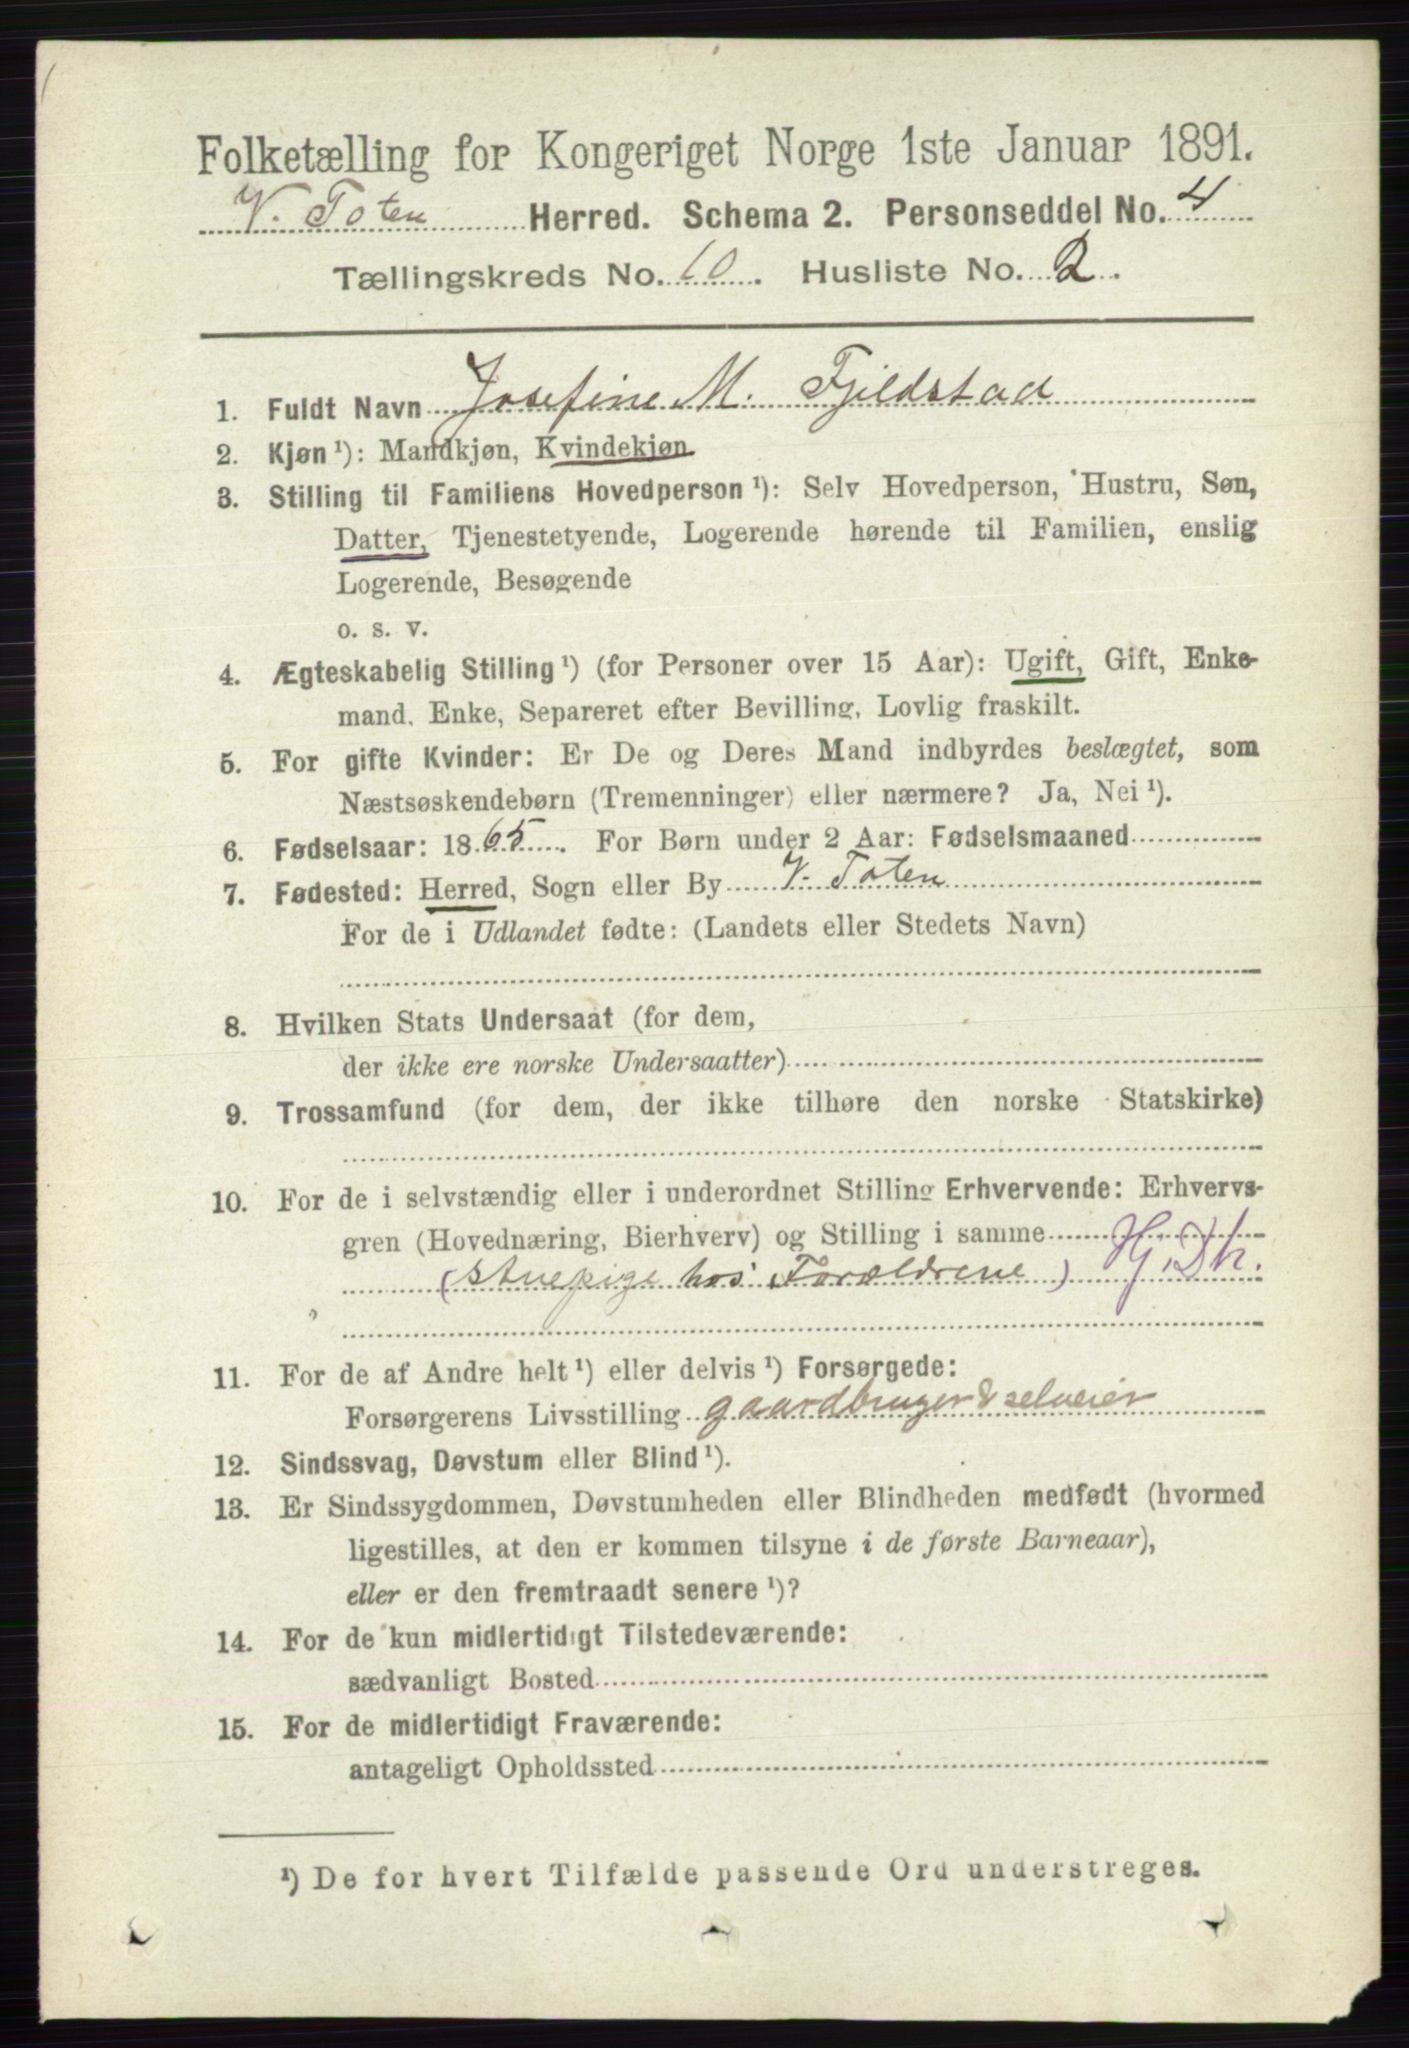 Folketælling for Kongeriget Norge 1ste Januar 1891.
V. Toten Herred. Schema 2. Personseddel No. 4
Tællingskreds No. 10. Husliste No. 2.
1. Fuldt Navn Josefine M. Fjeldstad
2. Kjøn ¹): Mandkjøn, Kvindekjøn
3. Stilling til Familiens Hovedperson ¹): Selv Hovedperson, Hustru, Søn,
Datter, Tjenestetyende, Logerende hørende til Familien, enslig
Logerende, Besøgende
o. s. v.
4. Ægteskabelig Stilling ¹) (for Personer over 15 Aar): Ugift, Gift, Enke-
mand, Enke, Separeret efter Bevilling, Lovlig fraskilt.
5. For gifte Kvinder: Er De og Deres Mand indbyrdes beslægtet, som
Næstsøskendebørn (Tremenninger) eller nærmere? Ja, Nei ¹).
6. Fødselsaar: 1865. For Børn under 2 Aar: Fødselsmaaned
7. Fødested: Herred, Sogn eller By V. Toten
For de i Udlandet fødte: (Landets eller Stedets Navn)
8. Hvilken Stats Undersaat (for dem,
der ikke ere norske Undersaatter)
9. Trossamfund (for dem, der ikke tilhøre den norske Statskirke)
10. For de i selvstændig eller i underordnet Stilling Erhvervende: Erhvervs-
gren (Hovednæring, Bierhverv) og Stilling i samme
(Stuepige hos Forældrene) Hj. Dtr.
11. For de af Andre helt ¹) eller delvis ¹) Forsørgede:
Forsørgerens Livsstilling gaardbruger & selveier
12. Sindssvag, Døvstum eller Blind ¹).
13. Er Sindssygdommen, Døvstumheden eller Blindheden medfødt (hvormed
ligestilles, at den er kommen tilsyne i de første Barneaar),
eller er den fremtraadt senere ¹)?
14. For de kun midlertidigt Tilstedeværende:
sædvanligt Bosted
15. For de midlertidigt Fraværende:
antageligt Opholdssted
¹) De for hvert Tilfælde passende Ord understreges.